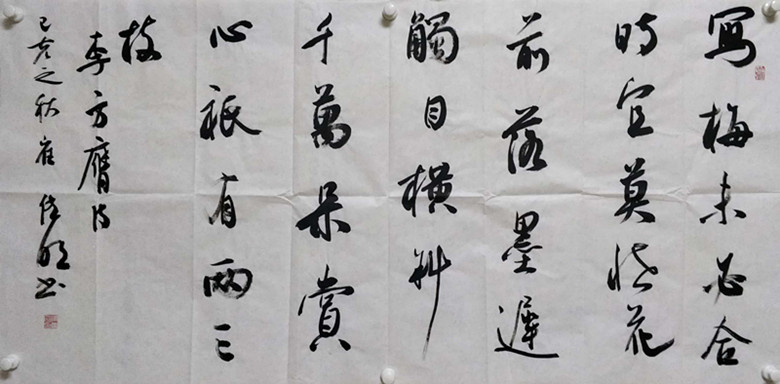 寫梅未必合
时宜莫恠花
前落墨遲
觸目橫斜
千萬朵賞
心祇有两三
枝
李方膺诗
己亥之秋崔明书